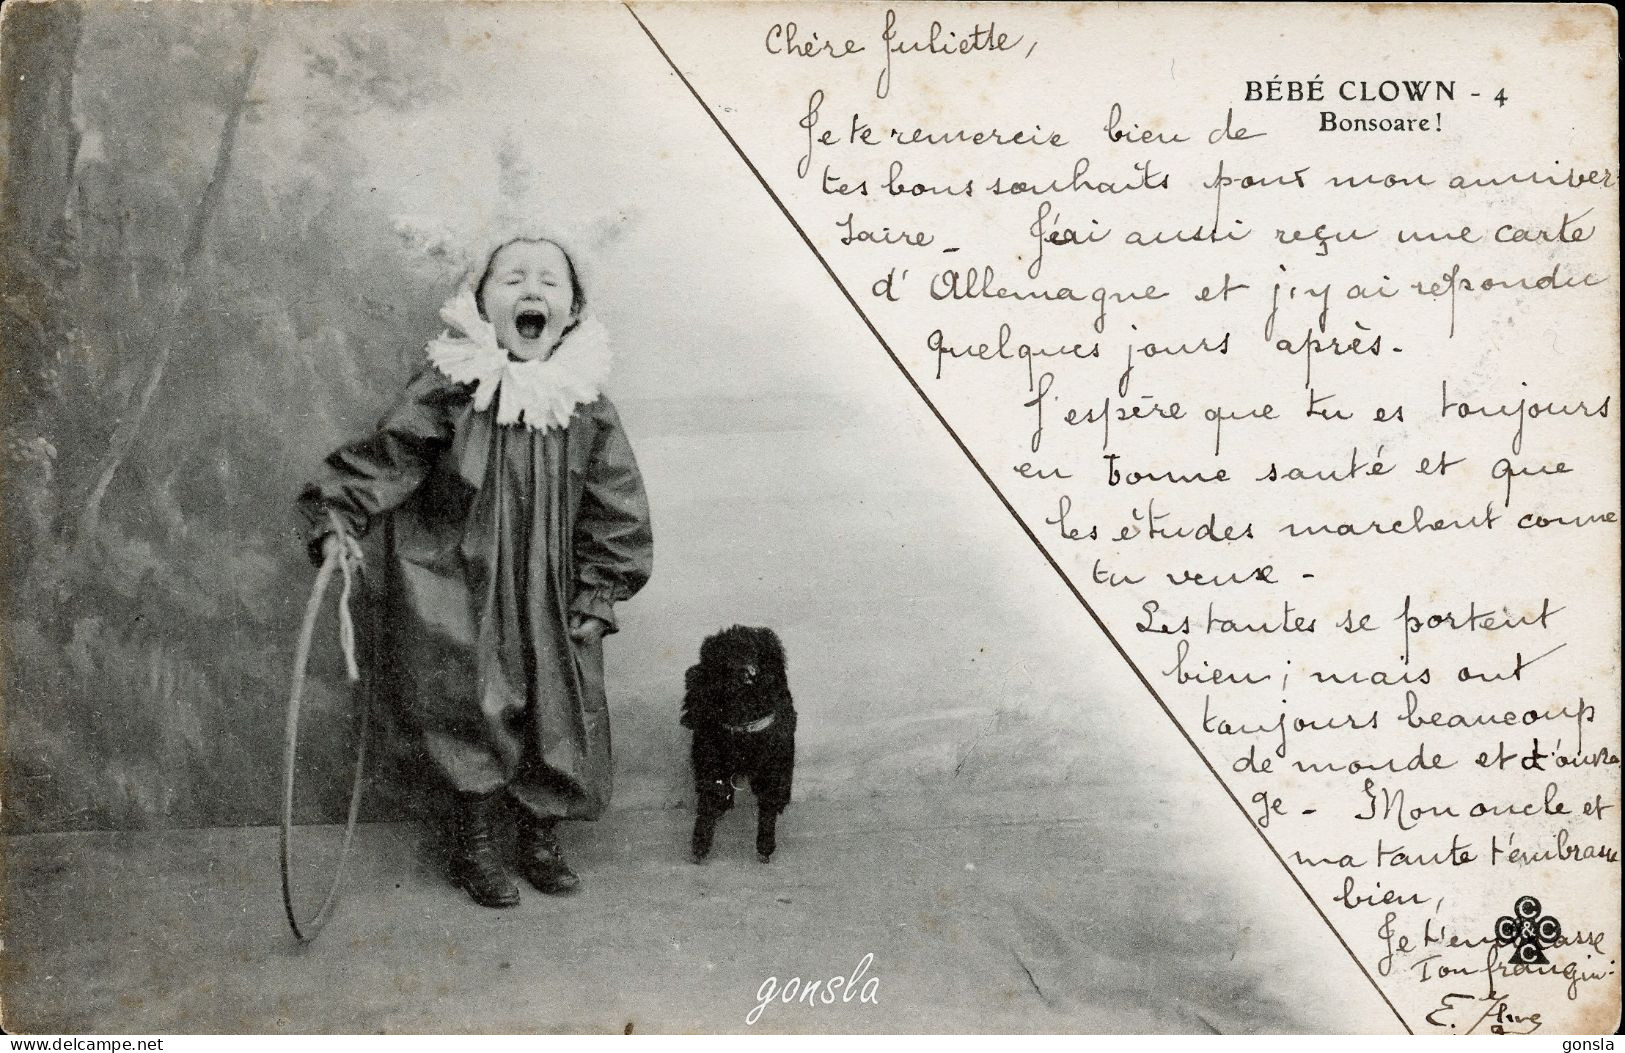 Chère Juliette,
BÉBÉ CLOWN - 4
Bonsoare!
Je te remercie bien de
tes bons souhaits pour mon anniver
saire_ J'ai aussi reçu une carte
d'Allemagne et j'y ai répondu
quelques jours après.
J'espère que tu es toujours
en bonne santé et que
les études marchent comme
tu veux -
Les tantes se portent
bien; mais ont
toujours beaucoup
de monde et d'ouvra
ge - Mon oncle et
ma tante t'embrasse
bien,
Je t'embrasse
Ton frangin
E.
C C & C C
gonsla
delcampe.net
gonsla